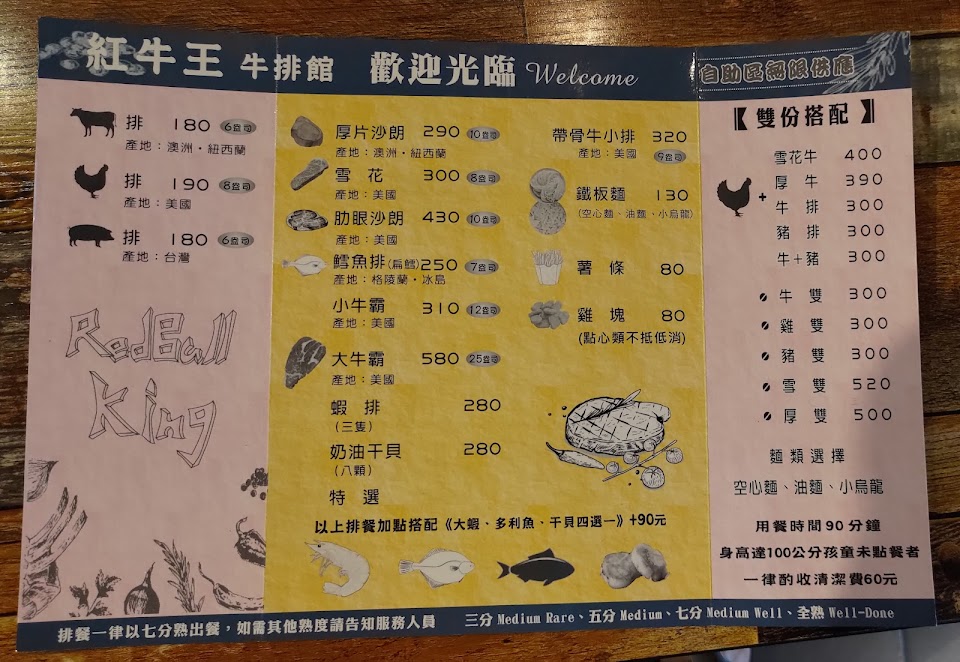 紅牛王 牛排館 歡迎光臨 Welcome
自助區無限供應
排 180 6盎司
產地：澳洲・紐西蘭
排 190 8盎司
產地：美國
排 180 6盎司
產地：台灣
RedBull
King
厚片沙朗 290 10盎司
產地：澳洲・紐西蘭
雪花 300 8盎司
產地：美國
肋眼沙朗 430 10盎司
產地：美國
鱈魚排(扁鱈)250 7盎司
產地：格陵蘭・冰島
小牛霸 310 12盎司
產地：美國
大牛霸 580 25盎司
產地：美國
蝦排 280
（三隻）
奶油干貝 280
（八顆）
特選
帶骨牛小排 320
產地：美國 9盎司
鐵板麵 130
(空心麵、油麵、小烏龍)
薯條 80
雞塊 80
(點心類不抵低消)
以上排餐加點搭配《大蝦、多利魚、干貝四選一》+90元
【雙份搭配】
雪花牛 400
+ 厚牛 390
牛排 300
豬排 300
牛+豬 300
牛雙 300
雞雙 300
豬雙 300
雪雙 520
厚雙 500
麵類選擇
空心麵、油麵、小烏龍
用餐時間90分鐘
身高達100公分孩童未點餐者
一律酌收清潔費60元
排餐一律以七分熟出餐，如需其他熟度請告知服務人員
三分 Medium Rare、五分 Medium、七分 Medium Well、全熟 Well-Done